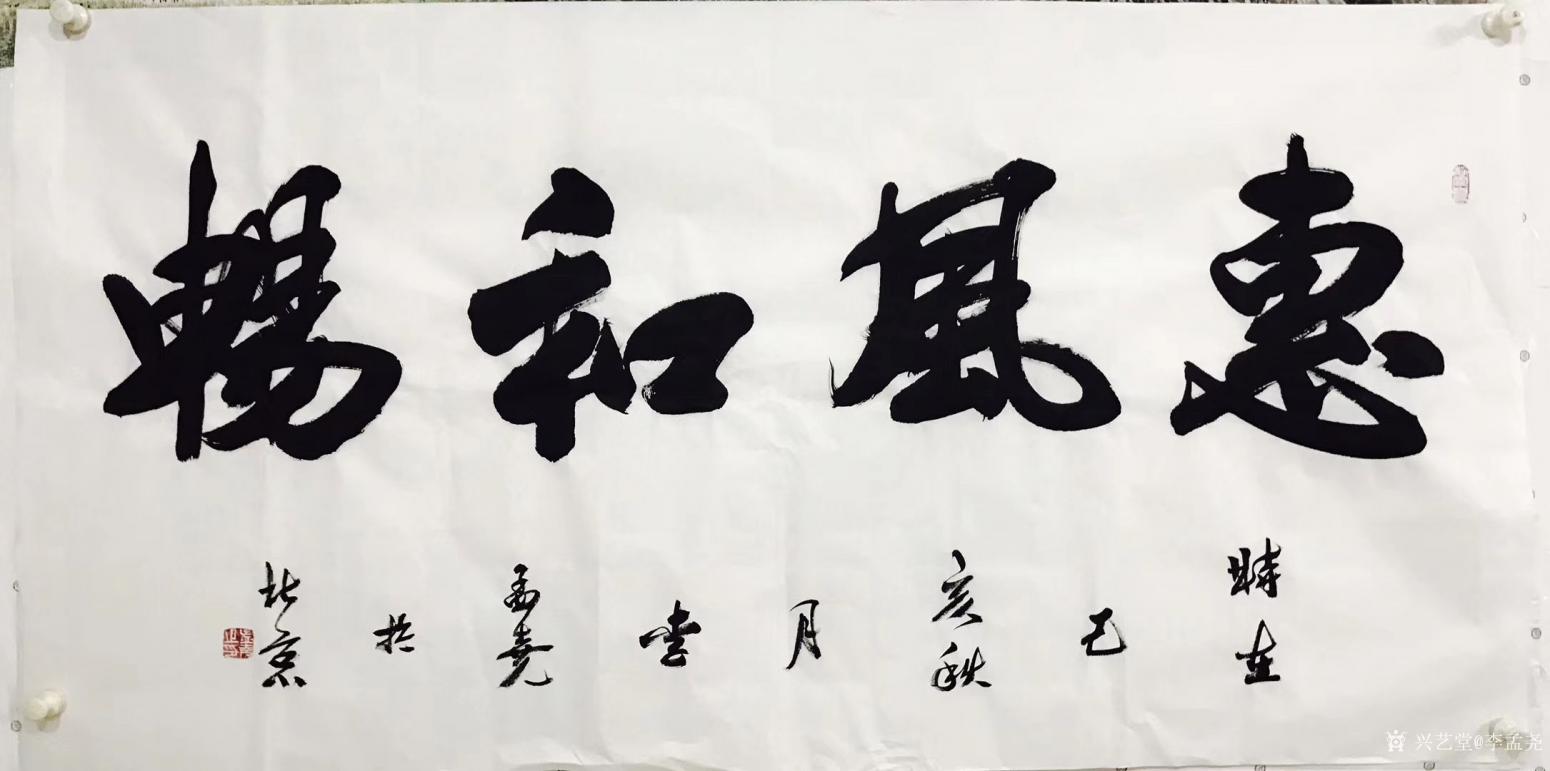 惠風和暢
時在己亥秋月李孟堯於北京
兴艺堂@李孟尧